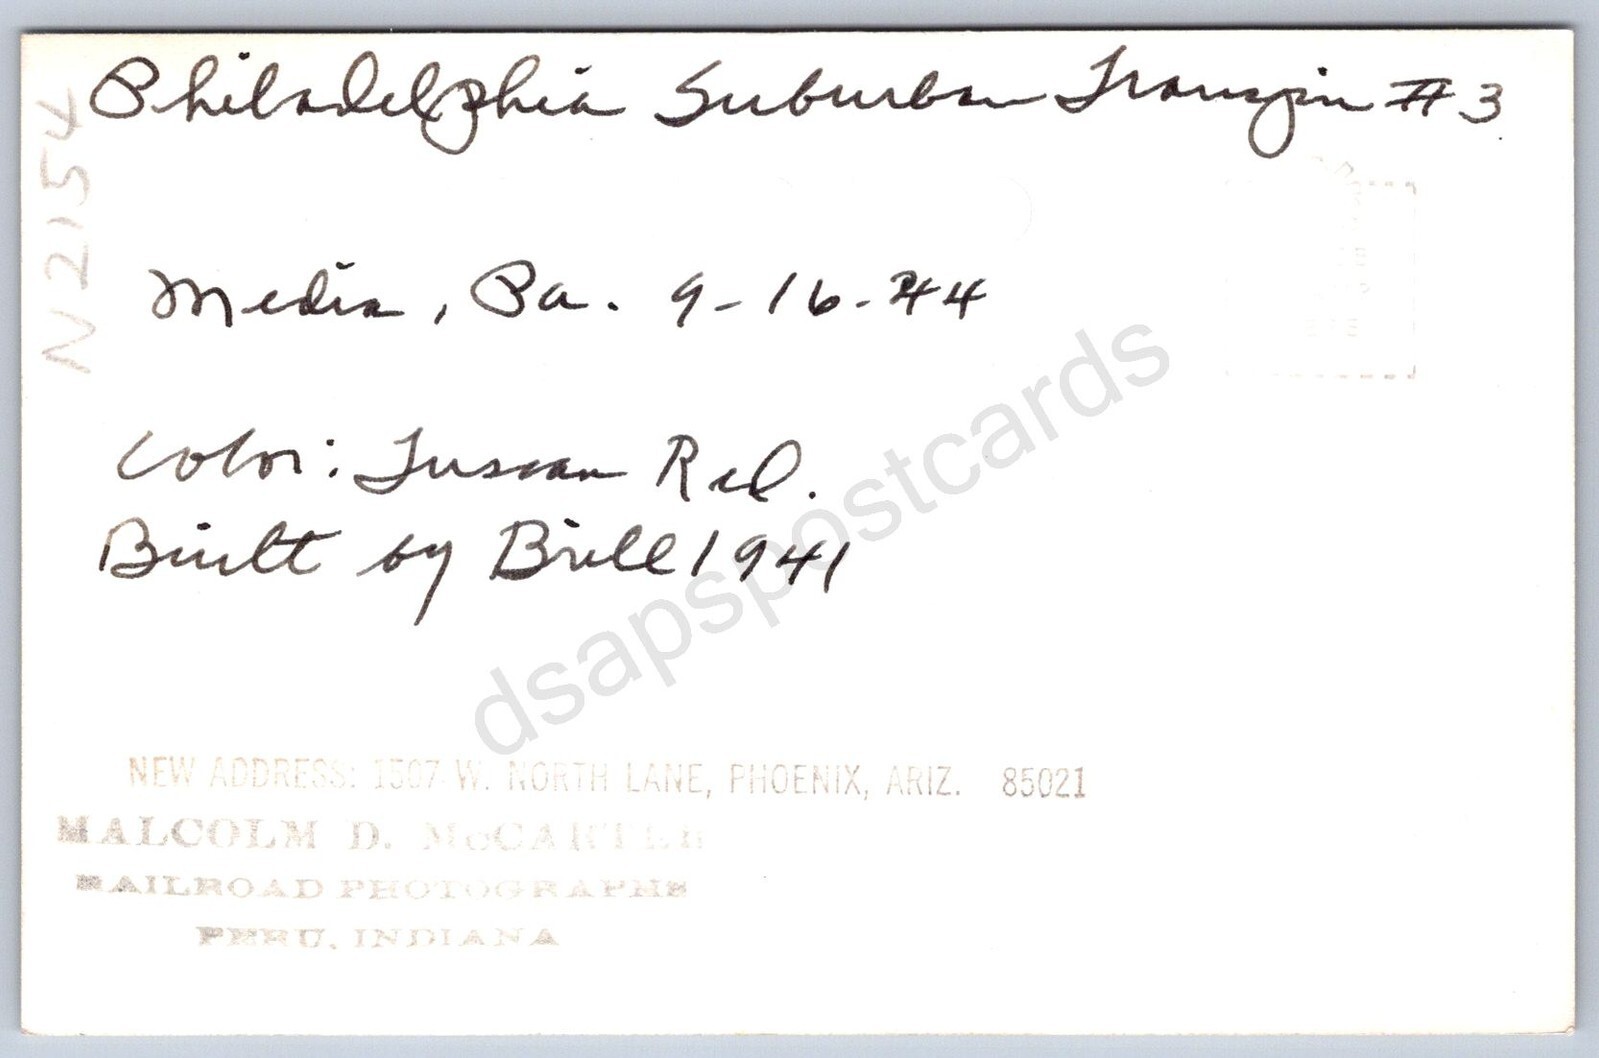 Philadelphia Suburban Transpin #3
N2154
Media, Pa. 9-16-44
Color: Tuscan Red.
Built by Brill 1941
dsapspostcards
NEW ADDRESS: 1507 W. NORTH LANE, PHOENIX, ARIZ. 85021
MALCOLM D. McCARTER
RAILROAD PHOTOGRAPHS
PERU, INDIANA